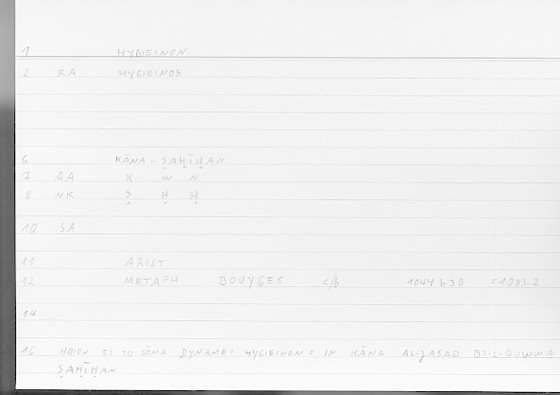 1 HYGIEINON
2 RA HYGIEINOS
6 KĀNA - ṢAḤĪḤAN
7 AA K W N
8 NK Ṣ Ḥ Ḥ
10 SA
11 ARIST
12 METAPH BOUYGES c/b 1044 b 30 =1083.2
14
16 HOION EI TO SŌMA DYNAMEI HYGIEINON = IN KĀNA AL-JASAD BI-L-QUWWA
ṢAḤĪḤAN